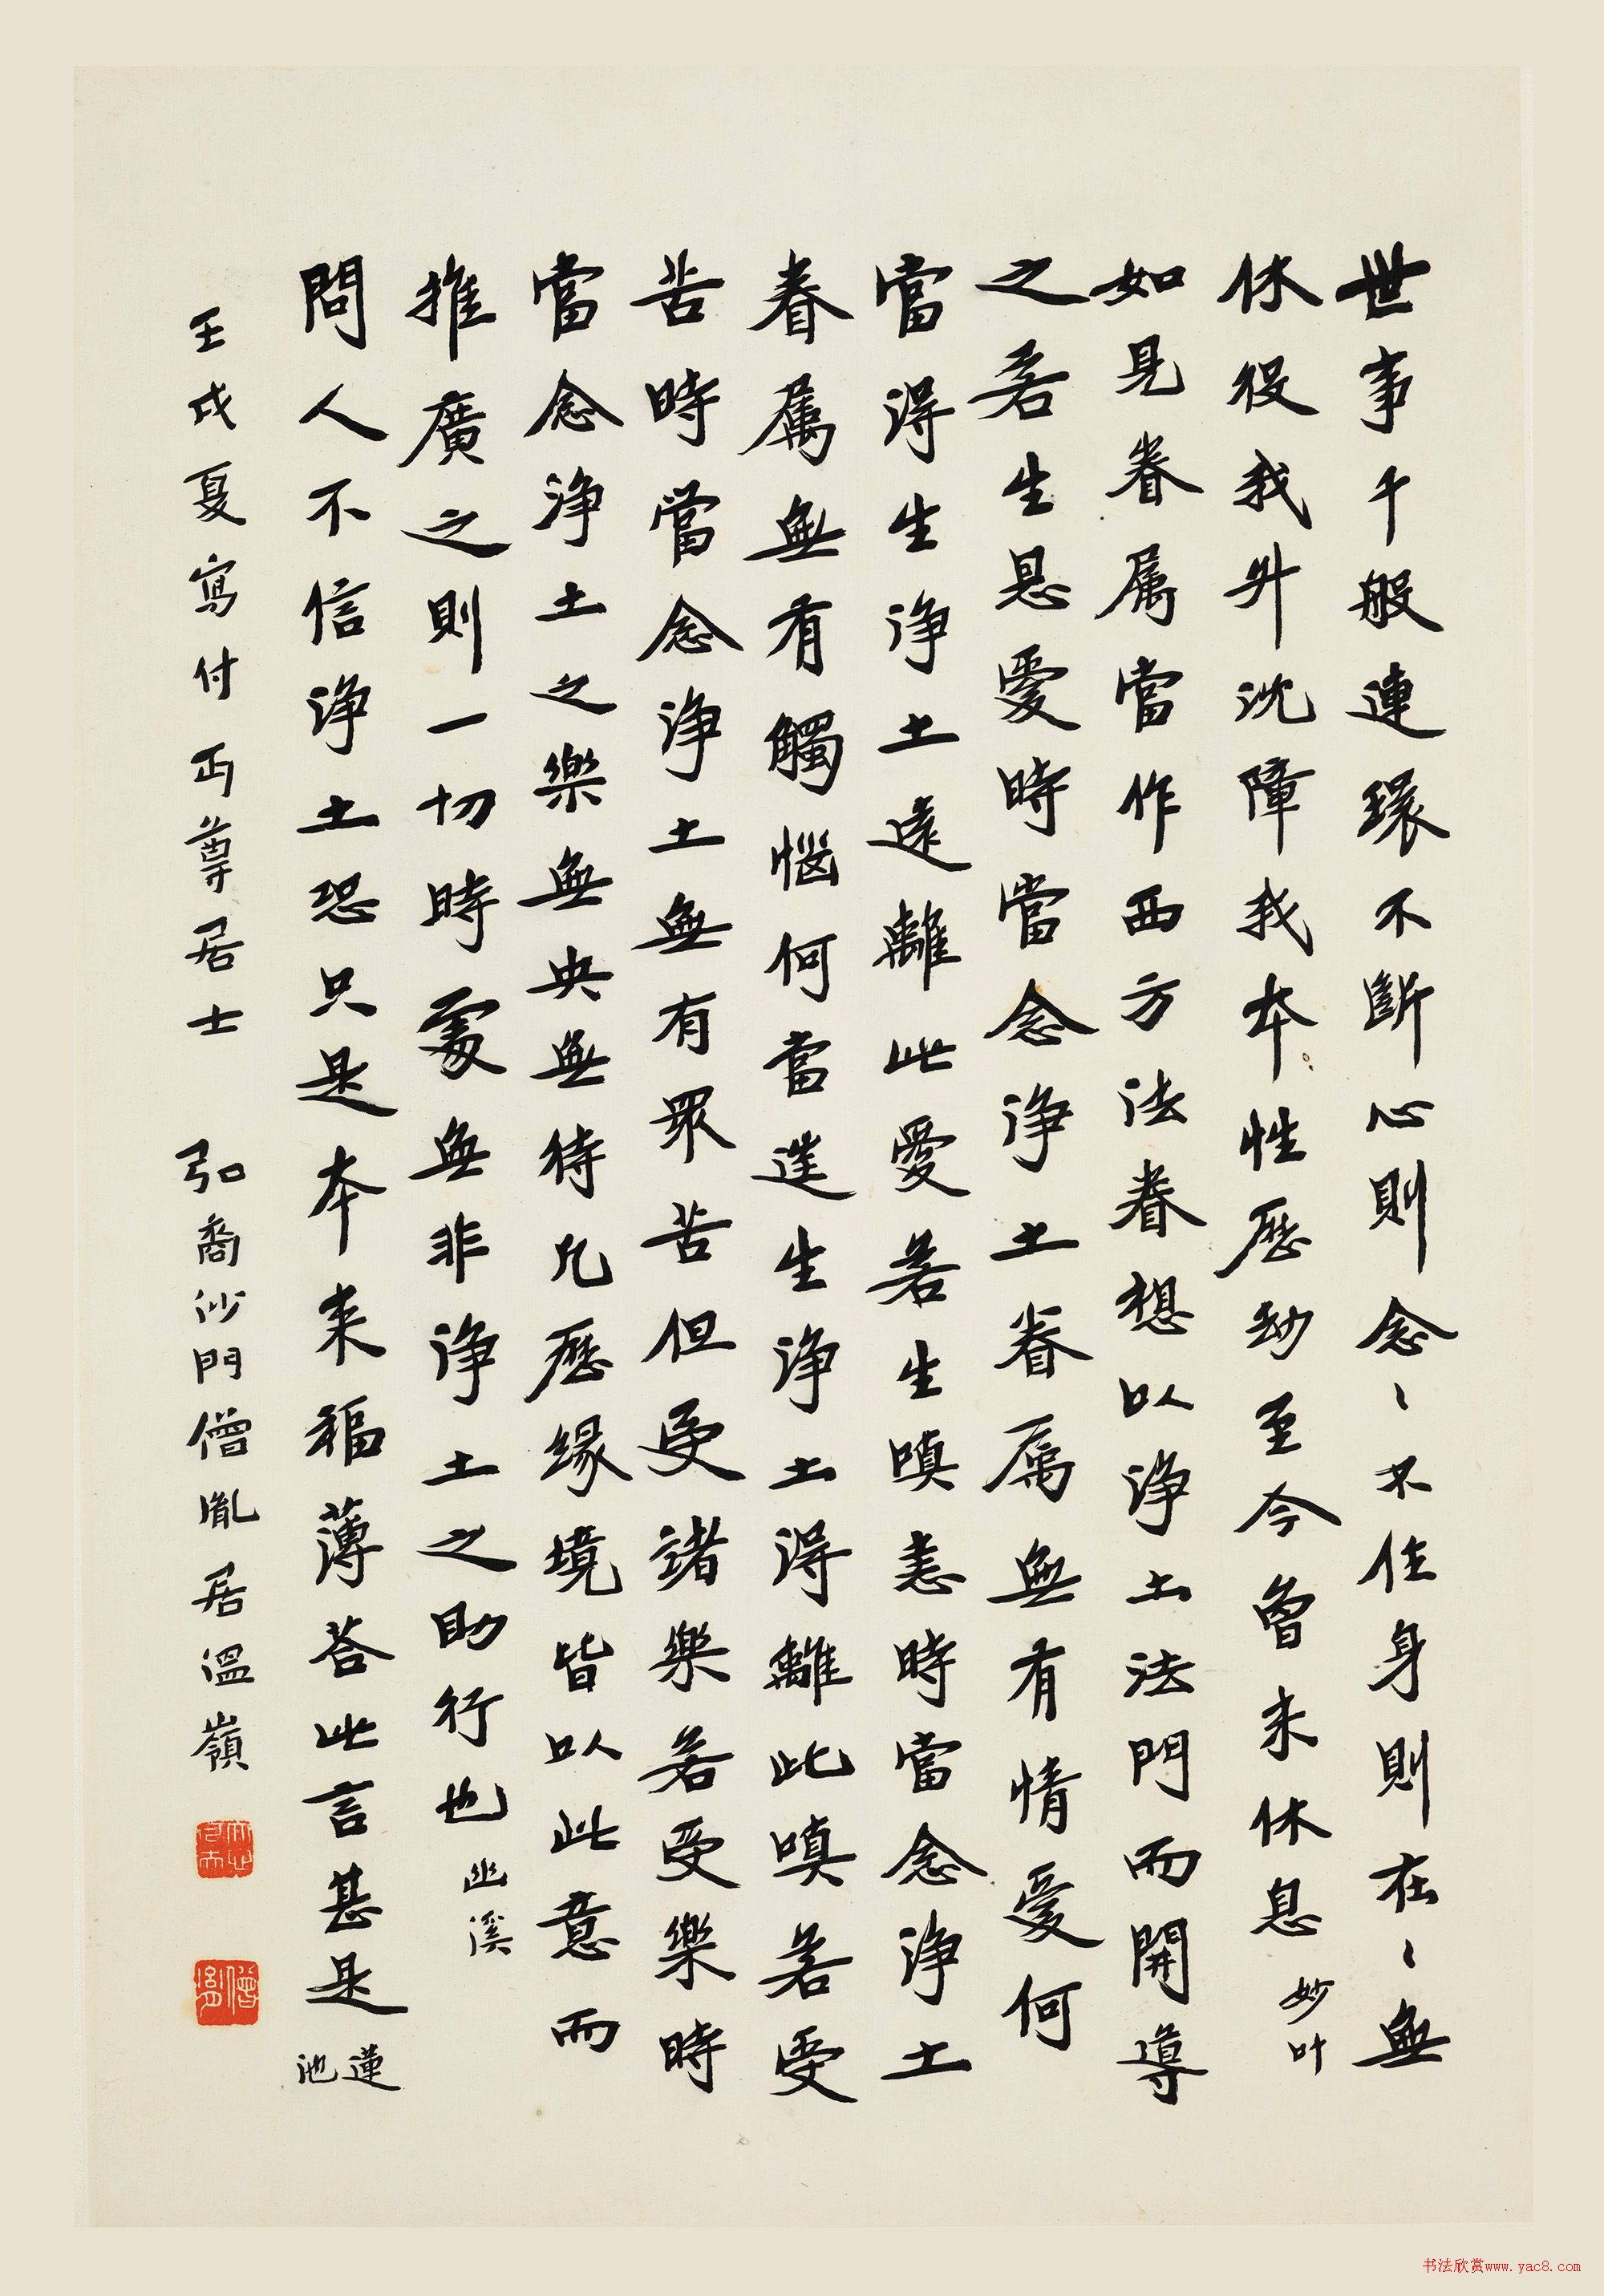 世事千般連環不斷心則念〻不住身則在〻無
休役我升沈障我本性歷劫至今曾未休息 妙叶
如見眷屬當作西方法眷想以淨土法門而開導
之若生恩愛時當念淨土眷屬無有情愛何
當得生淨土遠離此愛若生嗔恚時當念淨土
眷屬無有觸惱何當往生淨土得離此嗔若受
苦時當念淨土無有眾苦但受諸樂若受樂時
當念淨土之樂無央無待凡歷緣境皆以此意而
推廣之則一切時處無非淨土之助行也 幽溪
問人不信淨土恐只是本来福薄荅此言甚是 蓮池
壬戌夏寫付丏尊居士 弘裔沙門僧胤居溫嶺
书法欣赏www.yac8.com